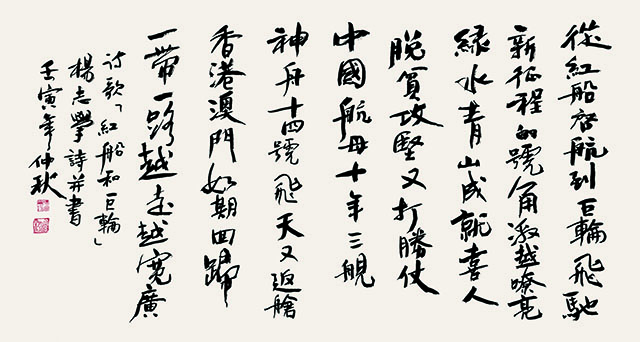 從紅船啓航到巨輪飛馳
新征程的號角激越嘹亮
綠水青山成就喜人
脫貧攻堅又打勝仗
中國航母十年三舰
神舟十四號飛天又返艙
香港澳門如期回歸
一帶一路越走越寬廣
诗歌「紅船和巨輪」
楊志學詩并書
壬寅年仲秋